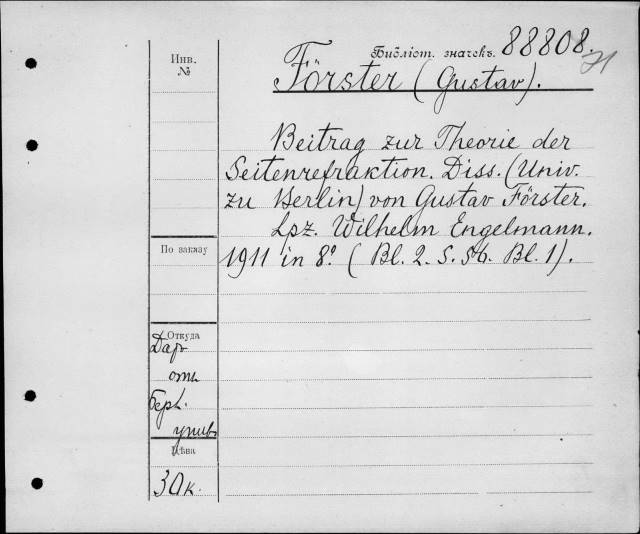 Библіот. значекъ. 88808.
21
Инв.
№
Förster (Gustav).
Beitrag zur Theorie der
Seitenrefraktion. Diss. (Univ.
zu Berlin) von Gustav Förster.
Lpz. Wilhelm Engelmann.
По заказу
1911 in 8º. (Bl. 2. S. 56. Bl. 1).
Откуда
Даръ
отъ
Берл.
унив.
Цѣна
30к.